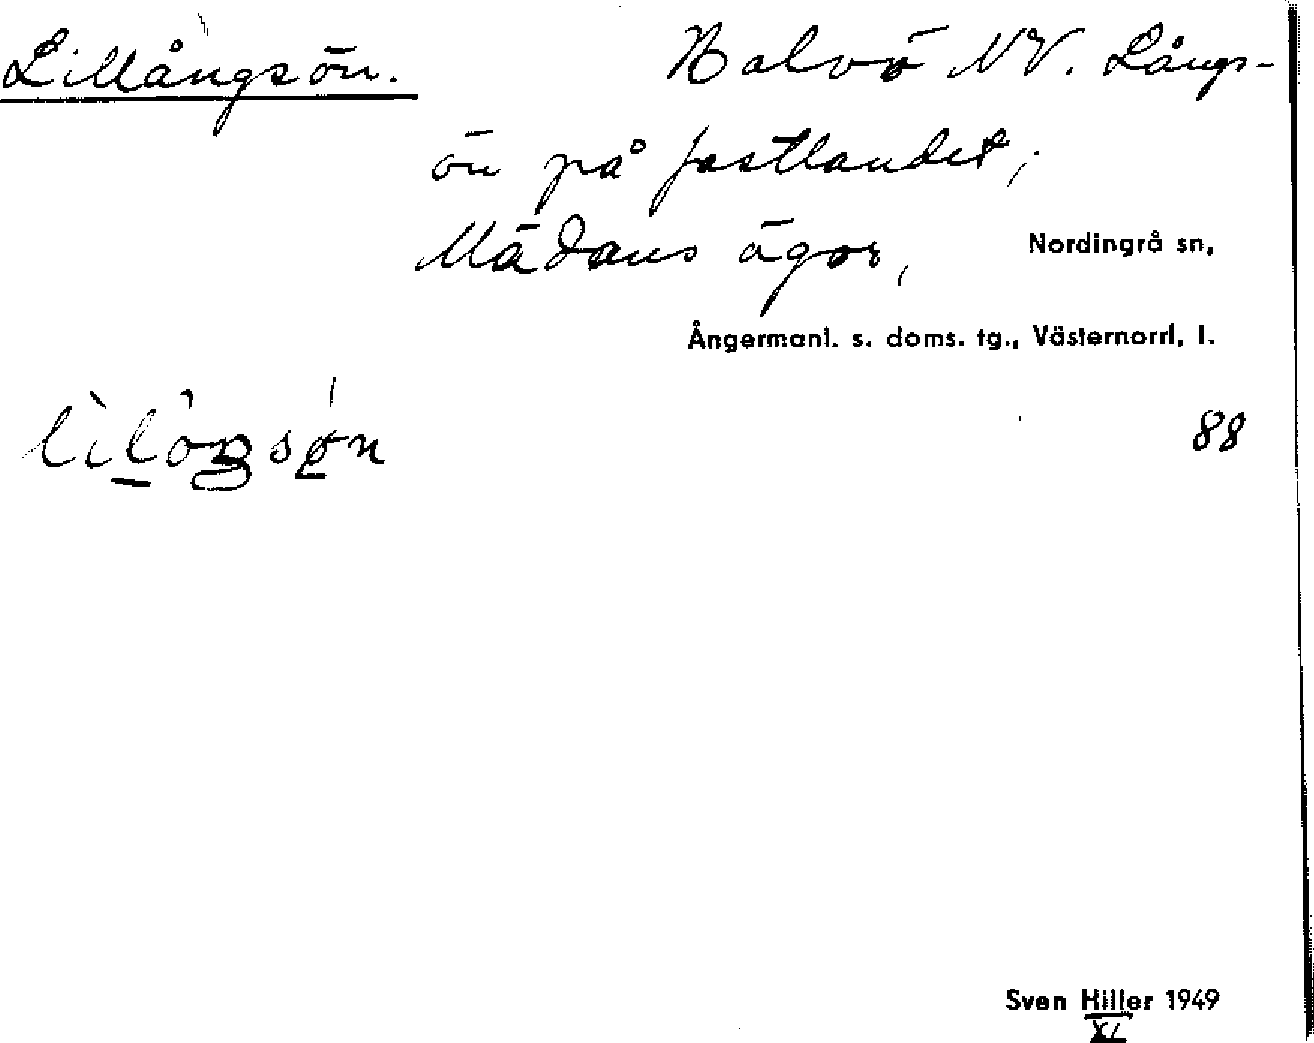 Lillångsön.
Halvö NV. Långs-
ön på fastlandet,
Mädans ägor,
Nordingrå sn,
Ångermanl. s. doms. tg., Västernorrl. l.
88
Sven Hiller 1949
XI